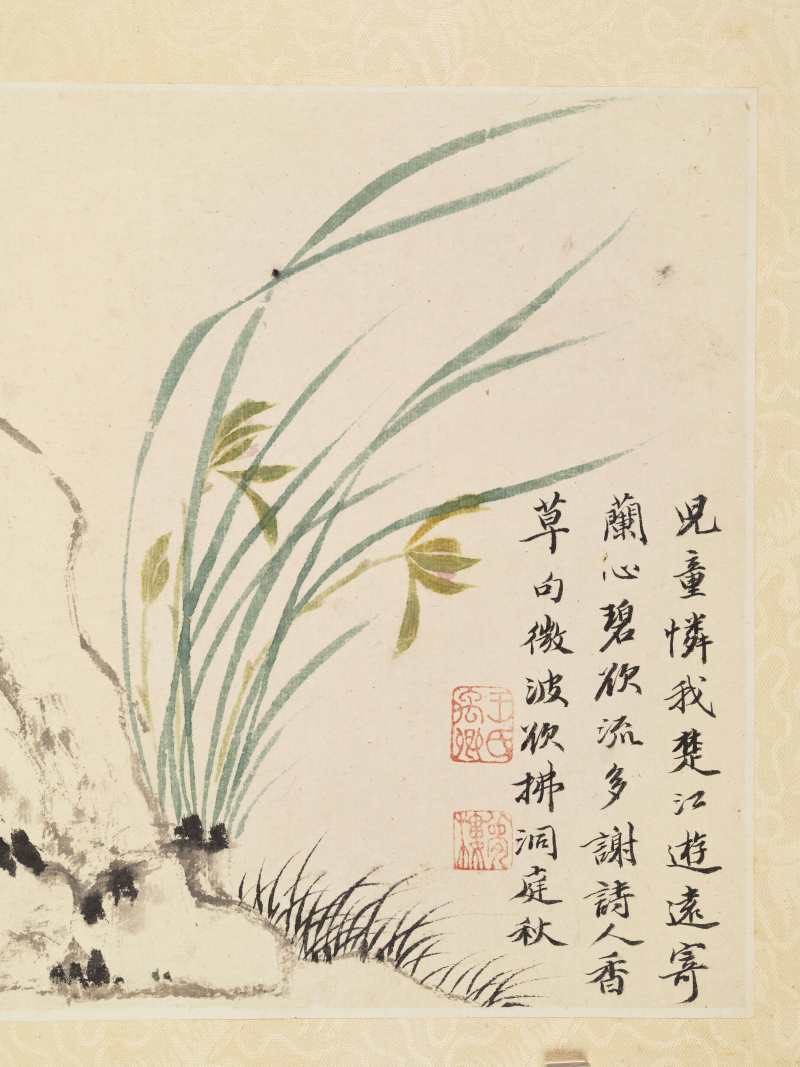 兒童憐我楚江遊遠寄
蘭心碧欲流多謝詩人香
草句微波欲拂洞庭秋
王氏禹卿